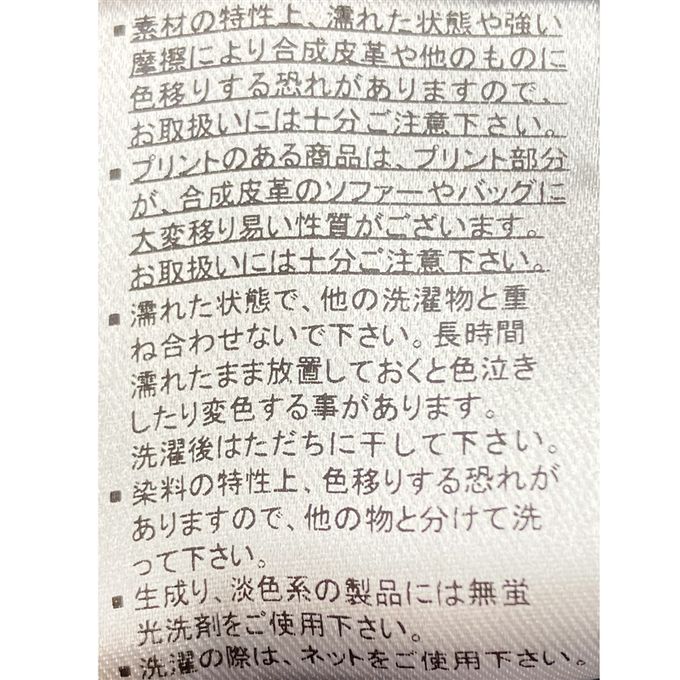 ▪素材の特性上、濡れた状態や強い
摩擦により合成皮革や他のものに
色移りする恐れがありますので、
お取扱いには十分ご注意下さい。
▪プリントのある商品は、プリント部分
が、合成皮革のソファーやバッグに
大変移り易い性質がございます。
お取扱いには十分ご注意下さい。
▪濡れた状態で、他の洗濯物と重
ね合わせないで下さい。長時間
濡れたまま放置しておくと色泣き
したり変色する事があります。
洗濯後はただちに干して下さい。
▪染料の特性上、色移りする恐れが
ありますので、他の物と分けて洗
って下さい。
▪生成り、淡色系の製品には無蛍
光洗剤をご使用下さい。
▪洗濯の際は、ネットをご使用下さい。